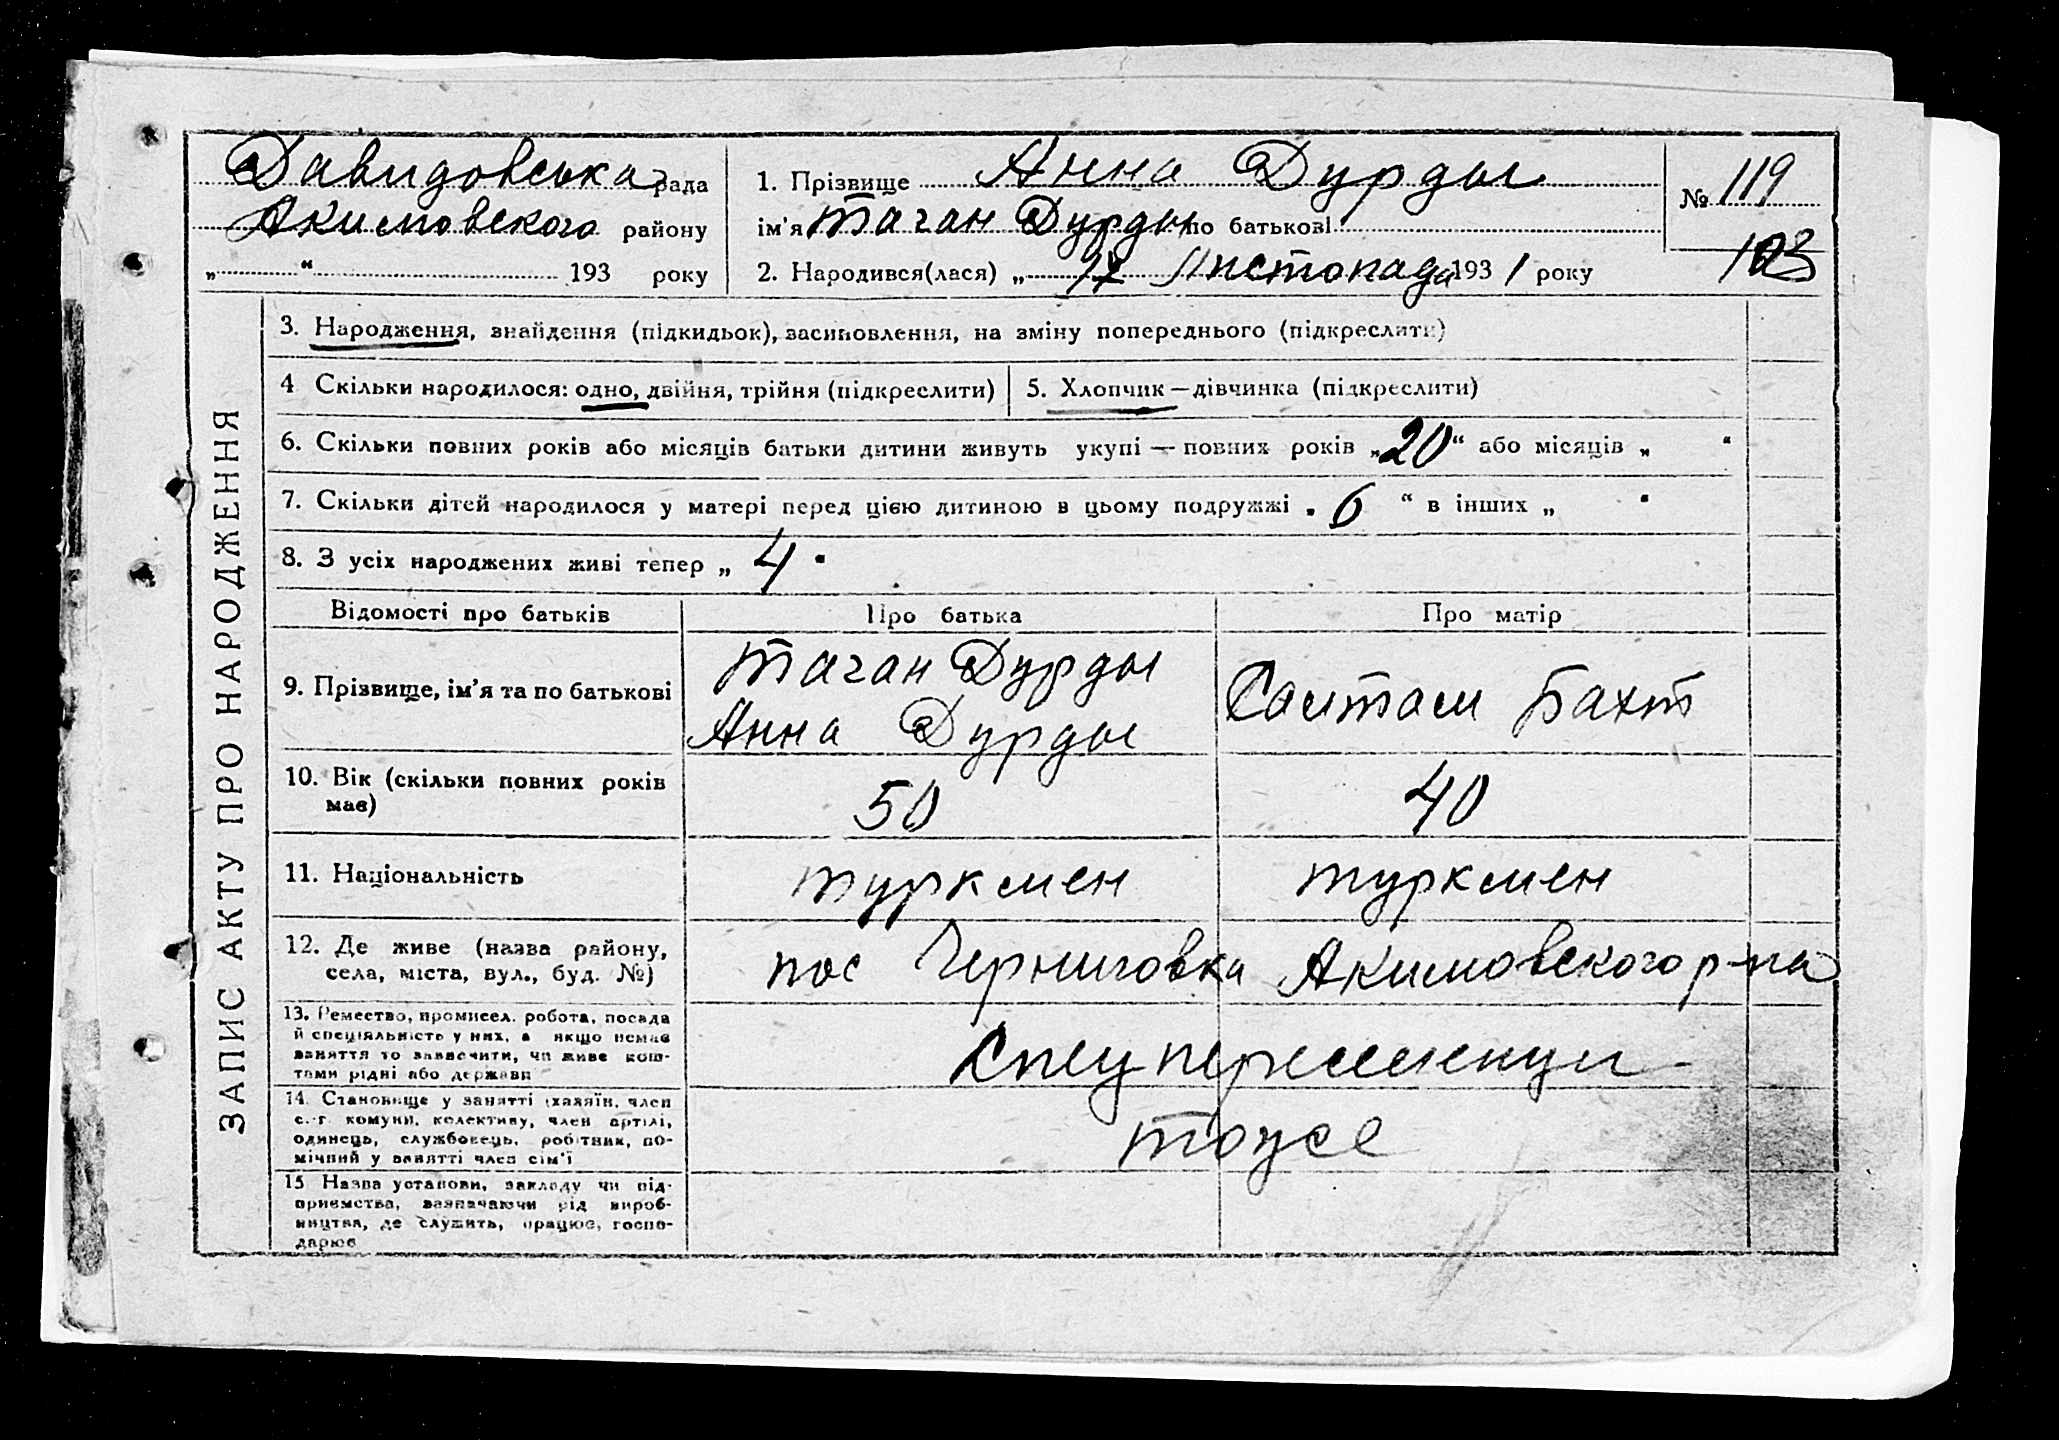 Давидовська рада
Акимовского району
„ “ 193 року
1. Прізвище Анна Дурды
ім'я Таган Дурды по батькові
2. Народився(лася) „ 17 Листопада 1931 року
№ 119
103
ЗАПИС АКТУ ПРО НАРОДЖЕННЯ
3. Народження, знайдення (підкидьок), засиновлення, на зміну попереднього (підкреслити)
4 Скільки народилося: одно, двійня, трійня (підкреслити)
5. Хлопчик — дівчинка (підкреслити)
6. Скільки повних років або місяців батьки дитини живуть укупі — повних років „20“ або місяців „ “
7. Скільки дітей народилося у матері перед цією дитиною в цьому подружжі „ 6 “ в інших „ “
8. З усіх народжених живі тепер „ 4 “
Відомості про батьків Про батька Про матір
9. Прізвище, ім'я та по батькові
Таган Дурды
Анна Дурды
Бахт
10. Вік (скільки повних років
має)
50 40
11. Національність туркмен туркмен
12. Де живе (назва району,
села, міста, вул., буд. №)
пос Черниговка Акимовского р-на
13. Ремество, промисел. робота, посада
й спеціяльність у них, а якщо немає
заняття то зазначити, чи живе кош-
тами рідні або держави
Спецпереселенцы
14. Становище у занятті (хазяїн, член
с.-г. комуни, колективу, член артілі,
одинець, службовець, робітник, по-
мічний у занятті член сім'ї
тоже
15 Назва установи, закладу чи під-
приємства, зазначаючи рід вироб-
ництва, де служить, працює, госпо-
дарює